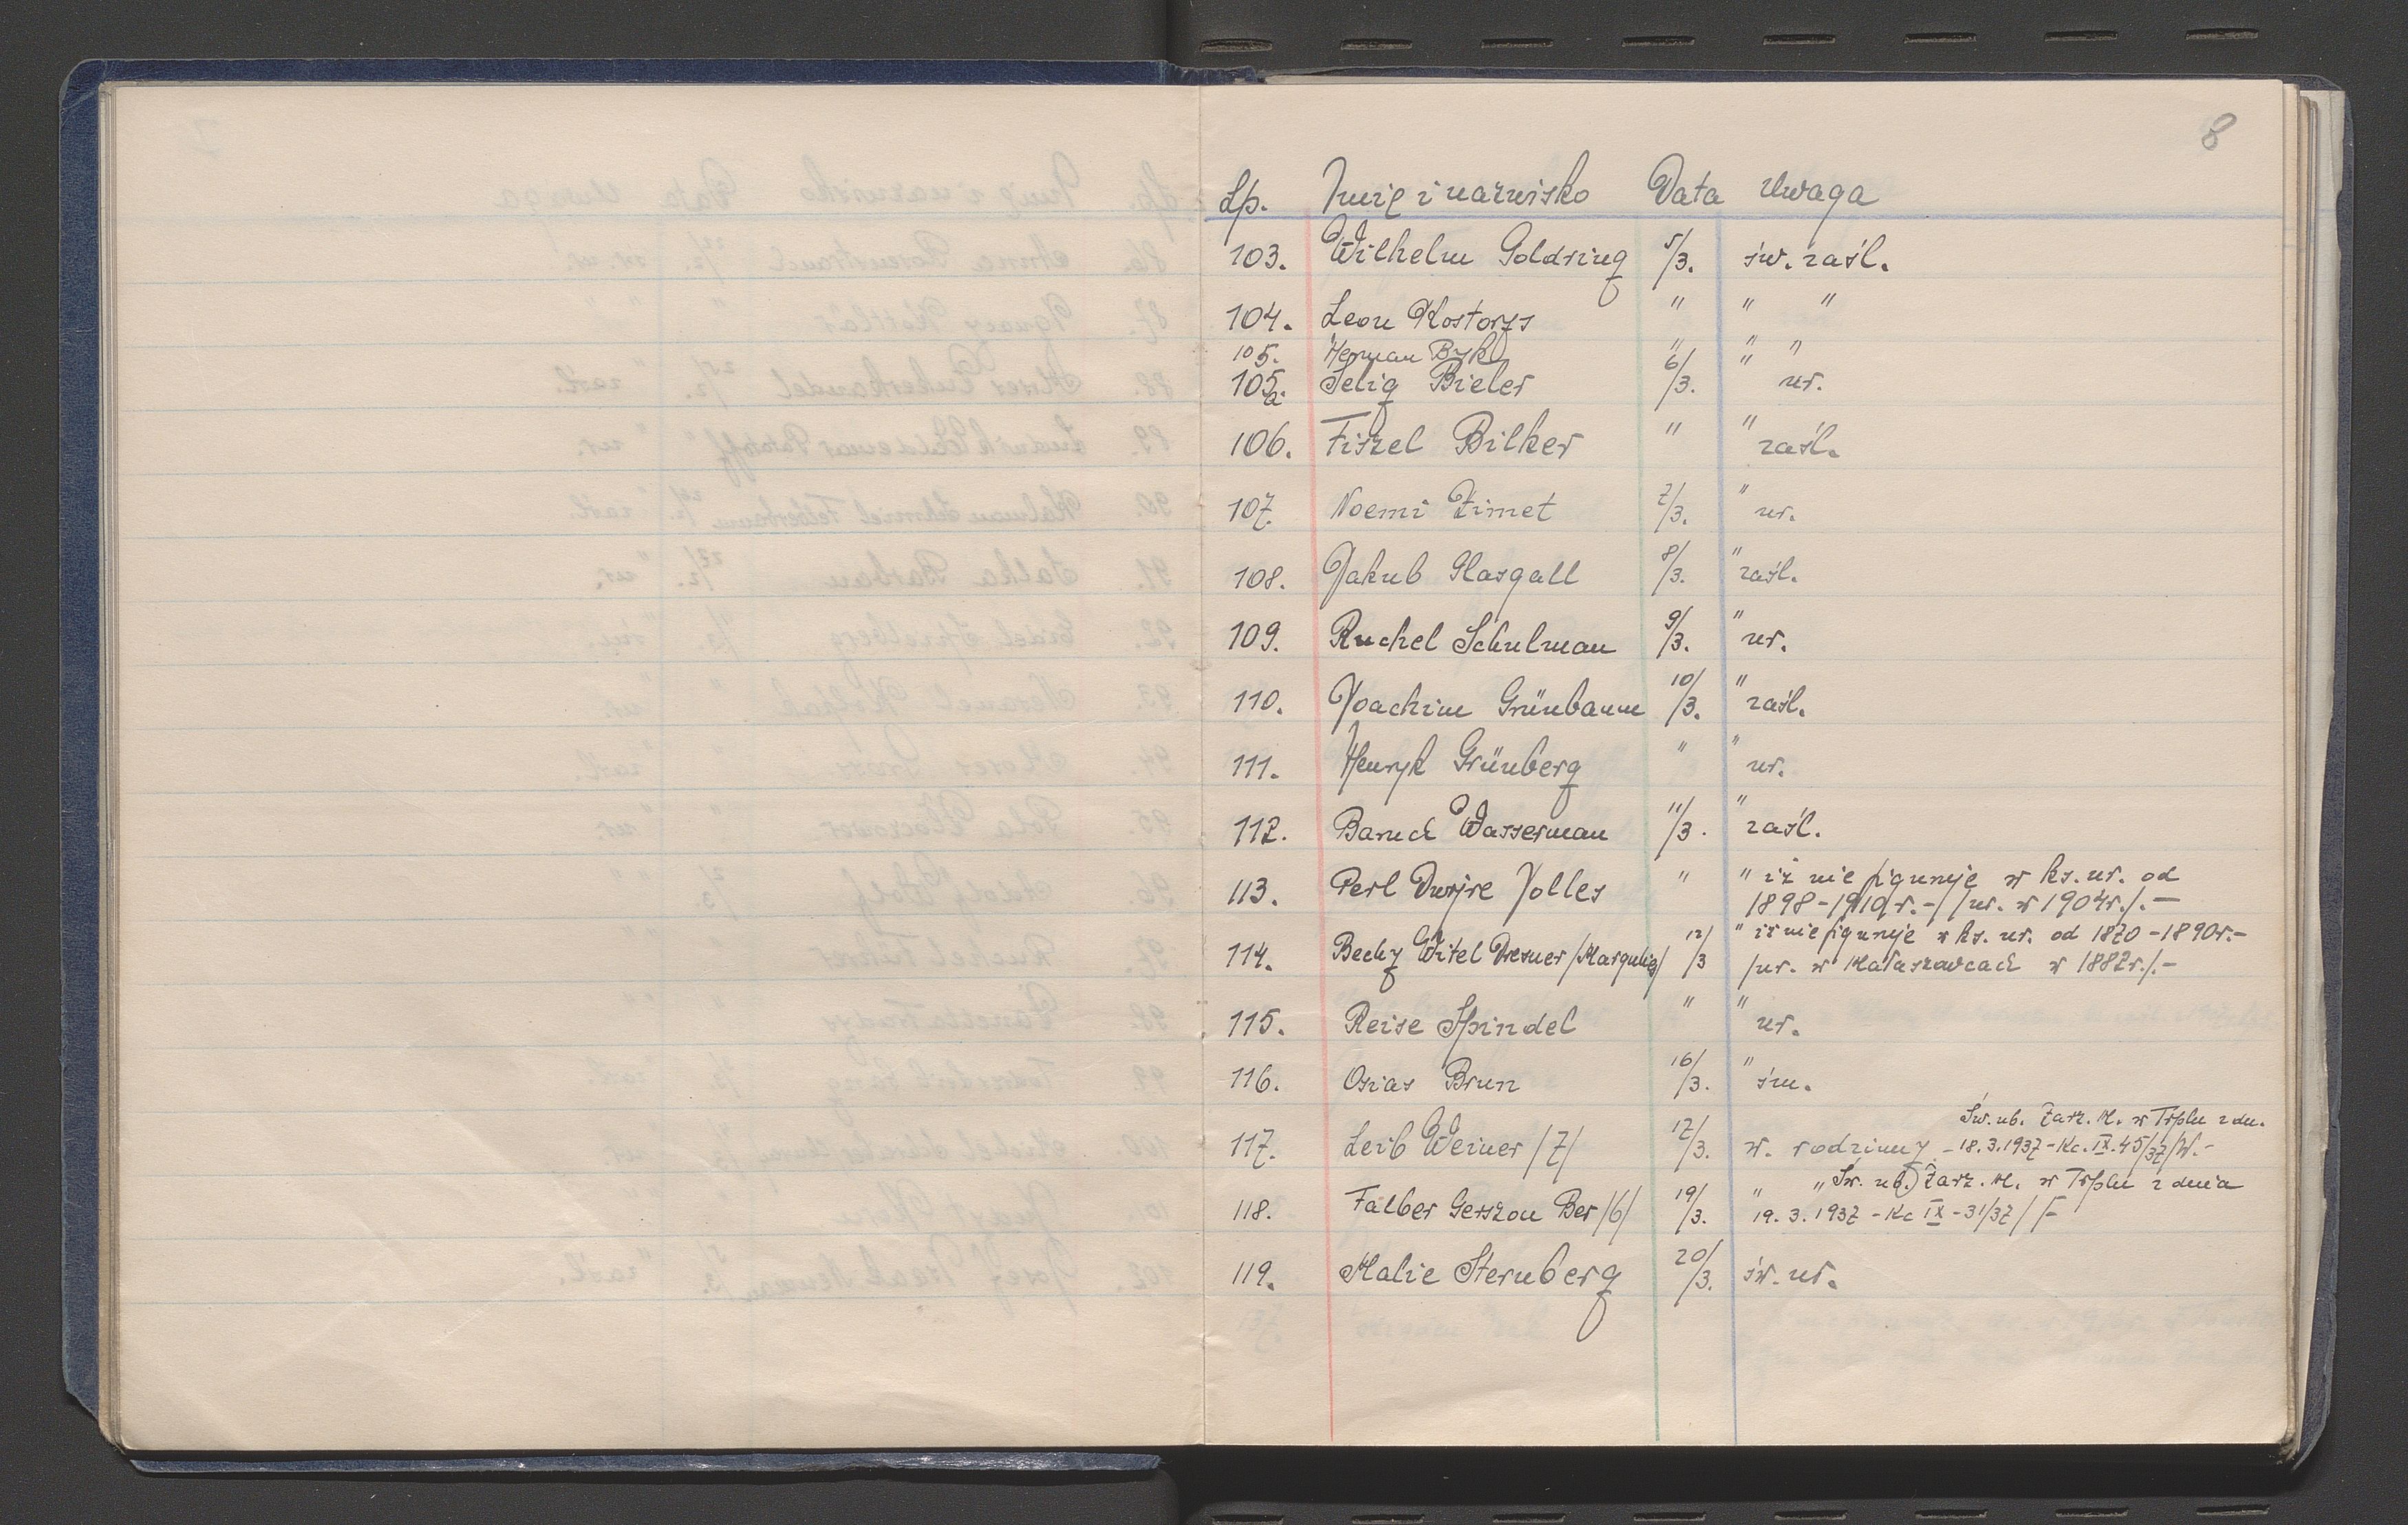 8
Lp. Imię i nazwisko Data Uwaga
103. Wilhelm Goldring 5/3. św. zaśl.
104. Leon Kostorzs " " "
105. Herman Byk " " "
105a. Selig Bieler 6/3. " ur.
106. Fiszel Bilker " " zaśl.
107. Noemi Zimet 7/3. " ur.
108. Jakub Glasgall 8/3. " zaśl.
109. Ruchel Schulman 9/3. " ur.
110. Joachim Grünbaum 10/3. " zaśl.
111. Henryk Grünberg " " ur.
112. Baruch Wasserman 11/3. " zaśl.
113. Perl Dwojre Jolles " " iż nie figuruje w ks. ur. od
1898-1910r.-/ /ur. w 1904r./.-
114. Becky Witel Dresner /Margulies/ 12/3 " iż nie figuruje w ks. ur. od 1870-1890r.-
/ur. w Hałuszowcach w 1882r./.-
115. Reise Spindel " " ur.
116. Osias Brun 16/3. " śm.
117. Leib Weiner /7/ 17/3. w. rodzinny - Św. ub. Zarz. M. w Trplu z dn.
18.3.1937-Kc.IX.45/37/W.-
118. Falber Gerszon Ber /6/ 19/3. " " Św. ub. Zarz. M. w Trplu z dnia
19.3.1937-Kc IX-31/37/F-
119. Malie Sternberg 20/3. św. ur.